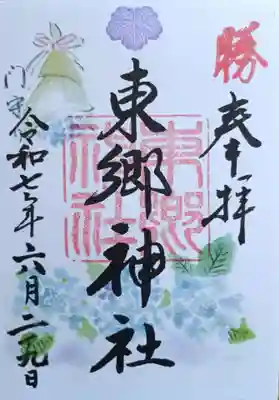 勝
奉拝
東郷神社
東郷神社
門守
令和七年六月二九日